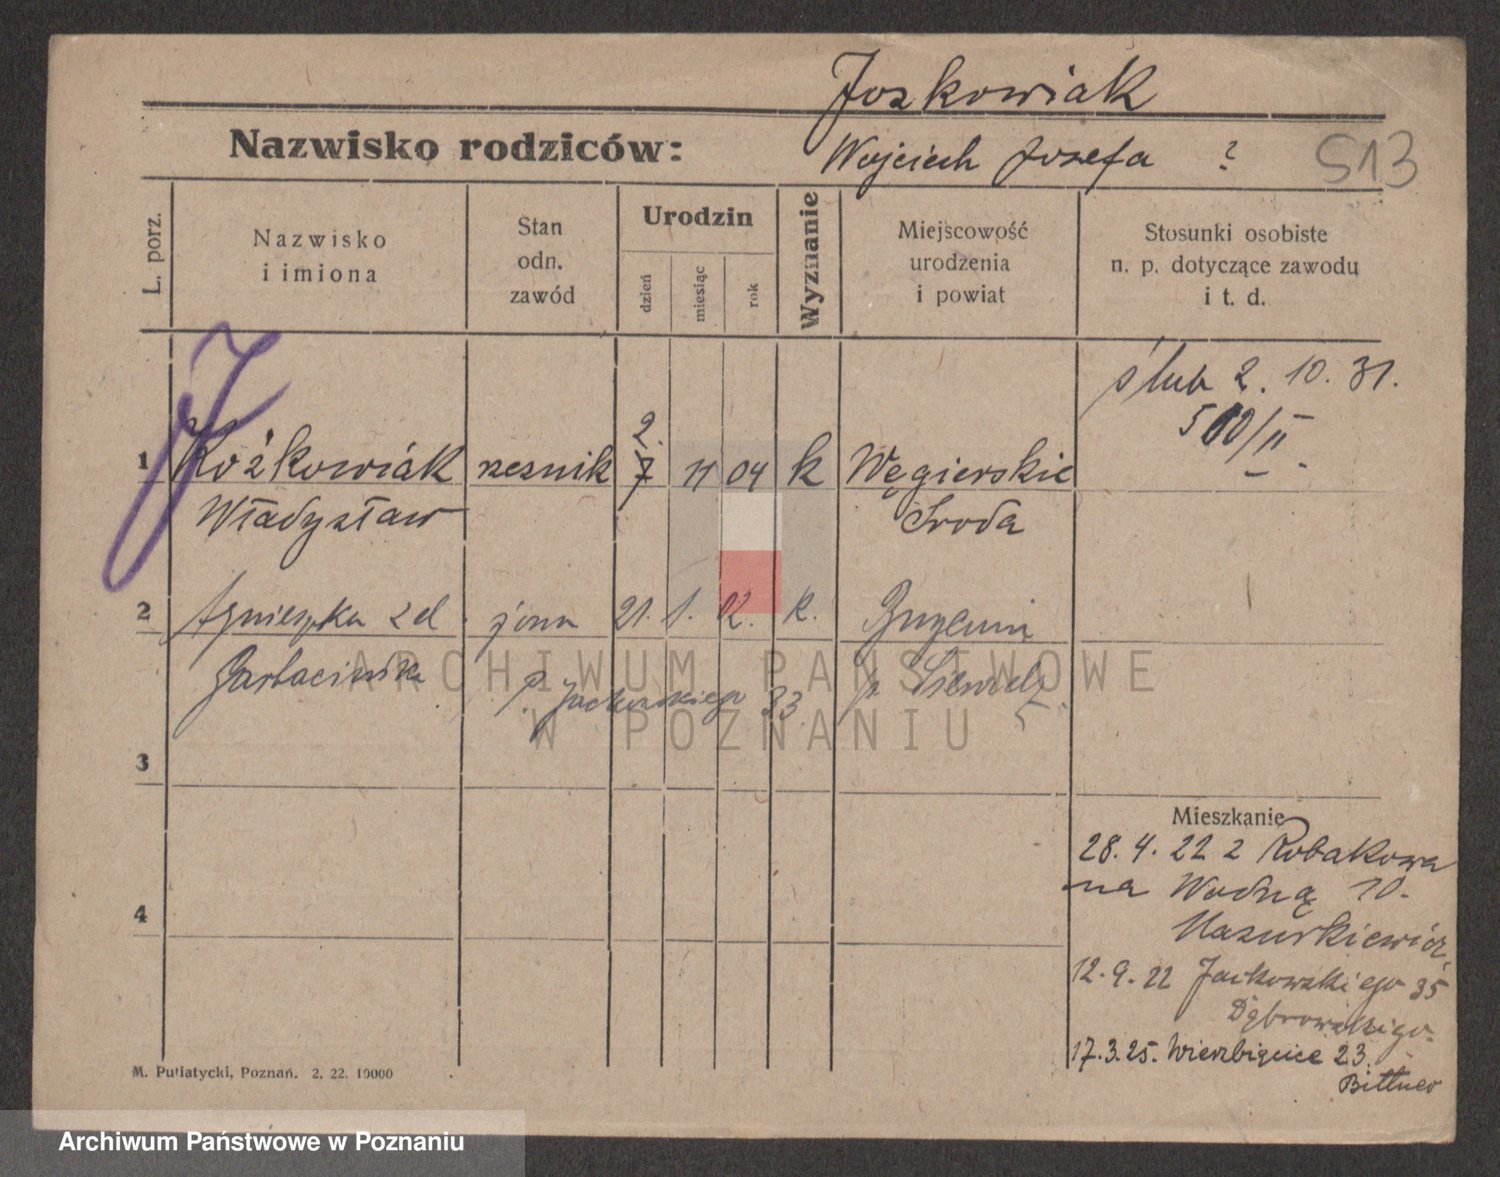 Joskowiak
Nazwisko rodziców:
Wojciech Jozefa ?
513
L. porz.
Nazwisko
i imiona
Stan
odn.
zawód
Urodzin
dzień
miesiąc
rok
Wyznanie
Miejscowość
urodzenia
i powiat
Stosunki osobiste
n. p. dotyczące zawodu
i t. d.
J
ślub 2. 10. 31.
500/II
2.
1 Koźkowiak rzeznik 7 11 04 k Węgierskie
Władysław Sroda
2 Agnieszka zd żona 21. 1. 02. k.
p.
P. Jackowskiego 33
ARCHIWUM PAŃSTWOWE
W POZNANIU
3
Mieszkanie
28. 4. 22 z Robakowa
na Wodną 10.
Mazurkiewicz
4
12. 9. 22 Jackowskiego 35
Dąbrowskiego
17. 3. 25. Wierzbięcice 23.
Bittner
M. Putiatycki, Poznań. 2. 22. 10000
Archiwum Państwowe w Poznaniu